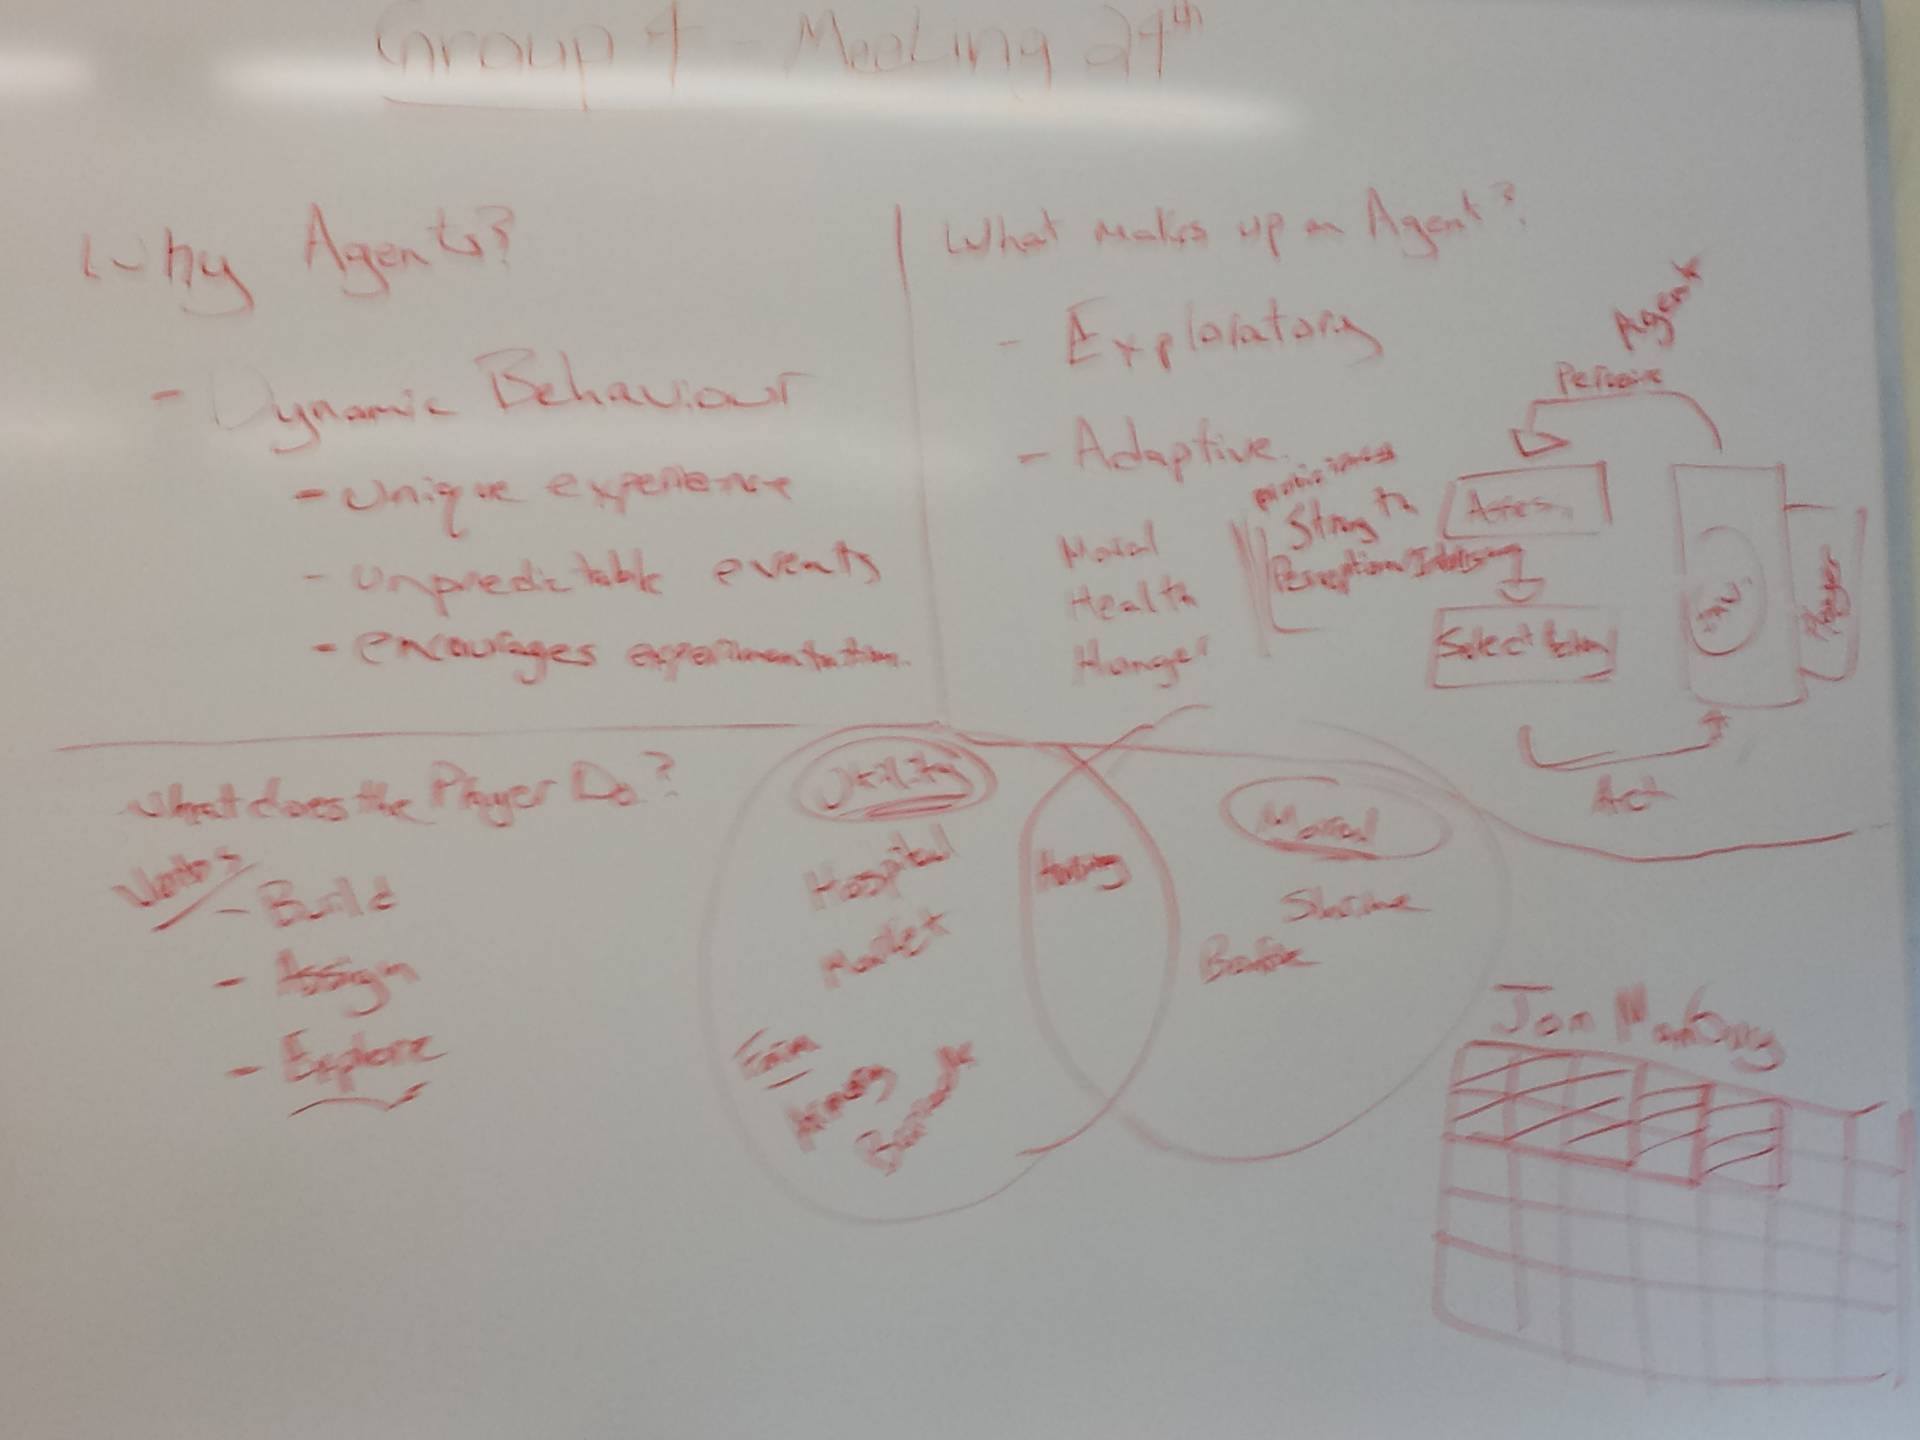 Group 4 - Meeting 24th
Why Agents?
- Dynamic Behaviour
- unique experience
- unpredictable events
- encourages experimentation.
What makes up an Agent?
- Exploratory
- Adaptive
Moral
Health
Hunger
Strength
Perception/
Agent
Perceive
Assess
Select Action
Env.
Player
Act
What does the Player Do?
Votes
- Build
- Assign
- Explore
Utility
Hospital
Market
Farm
Barricade
Moral
Shrine
Jon Manbury